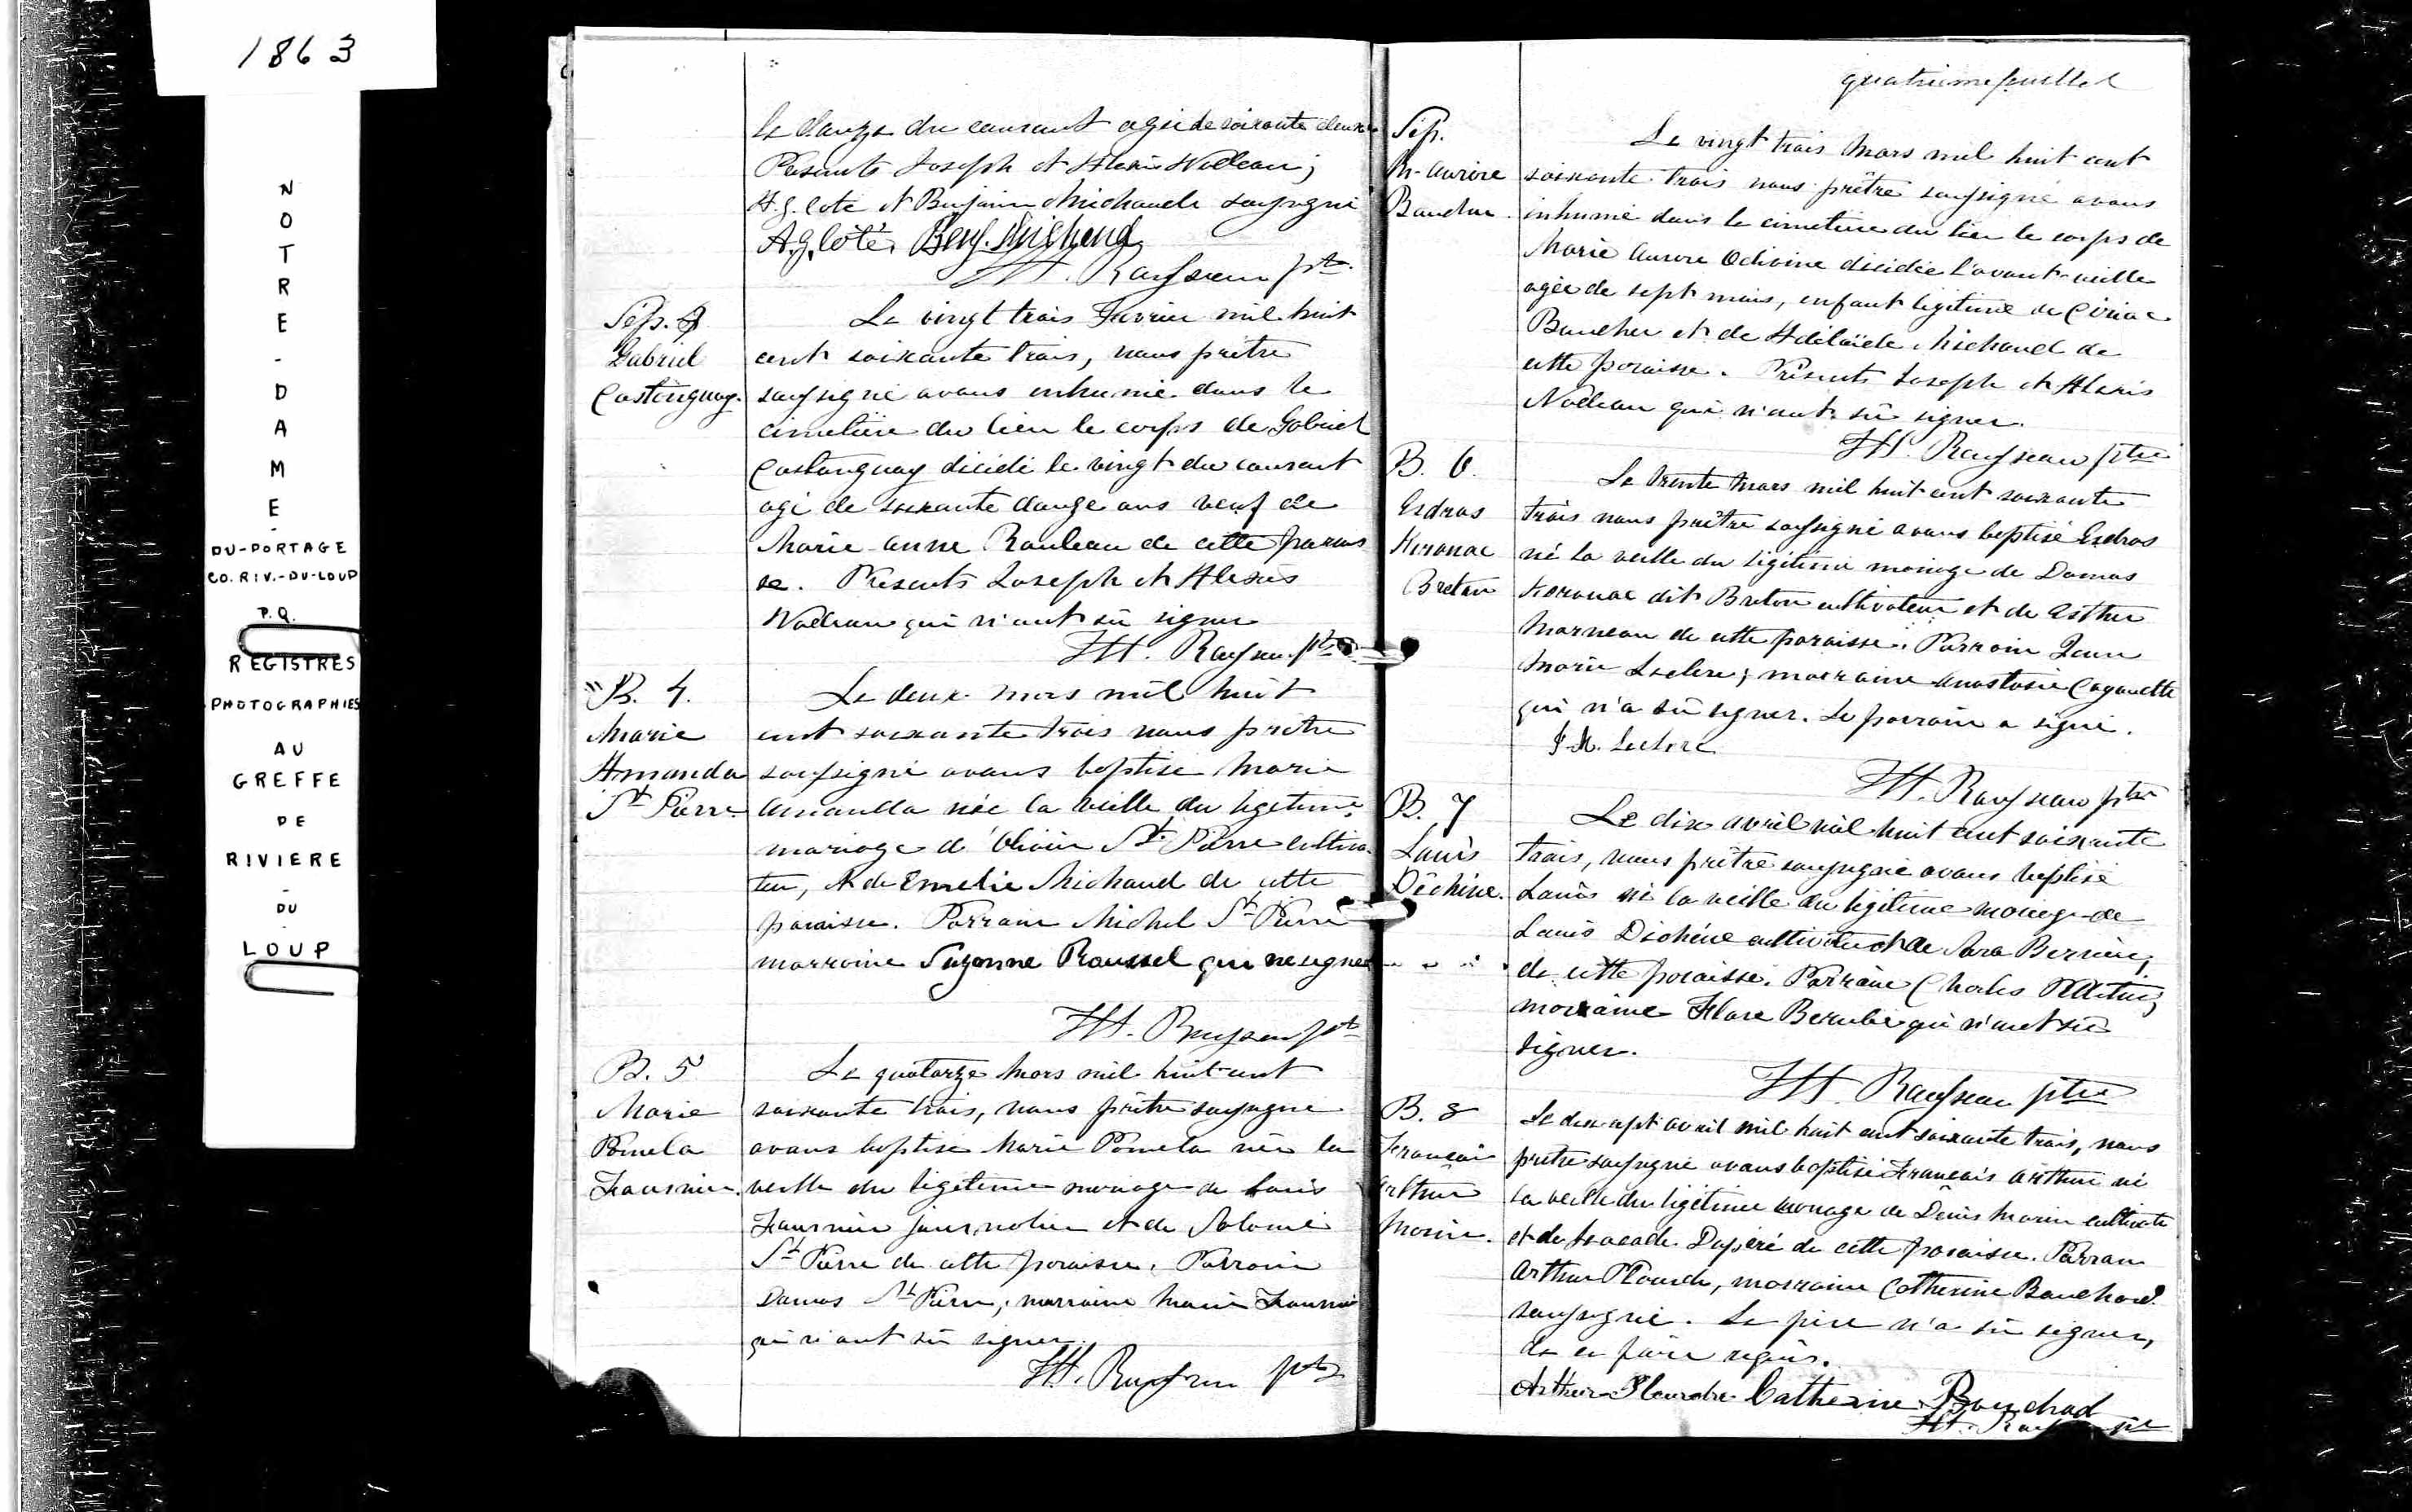 1863
NOTRE-DAME-
DU-PORTAGE
CO. RIV.-DU-LOUP
P.Q.
REGISTRES
PHOTOGRAPHIES
AU
GREFFE
DE
RIVIERE
-
DU
-
LOUP
le douze du courant agé de soixante deux
Présents Joseph et Alexis Nadeau;
A.G. Coté et Benjamin Michaud soussigné
A.G. Coté. Benj. Michaud
ptre
Sép.
Gabriel
Castonguay.
Le vingt trois Fevrier mil huit
cent soixante trois, nous prêtre
soussigné avons inhumé dans le
cimetière du lieu le corps de Gabriel
Castonguay décédé le vingt du courant
agé de soixante douze ans veuf de
Marie Anne Rouleau de cette parois
se. Présents Joseph et Alexis
Nadeau qui n'ont sû signer
ptre
B. 4.
Marie
Amanda
St Pierre
Le deux mars mil huit
cent soixante trois nous prêtre
soussigné avons baptisé Marie
Amanda née la veille du légitime
mariage d'Olivier St Pierre cultiva
teur, et de Emelie Michaud de cette
paroisse. Parrain Michel St Pierre
marraine Suzanne Roussel qui ne signe
ptre
B. 5
Marie
Pamela
Fournier.
Le quatorze Mars mil huit cent
soixante trois, nous prêtre soussigné
avons baptisé Marie Pamela née la
veille du légitime mariage de Louis
Fournier journalier et de Salomé
St Pierre de cette paroisse. Parrain
Damas St Pierre; marraine Marie Fournier
qui n'ont sû signer.
ptre
quatrième feuillet
Sép.
M-Aurore
Boucher
Le vingt trois Mars mil huit cent
soixante trois nous prêtre soussigné avons
inhumé dans le cimetière du lieu le corps de
Marie Aurore décédée l'avant-veille
agée de sept mois, enfant légitime de
Boucher et de Adélaïde Michaud de
cette paroisse. Présents Joseph et Alexis
Nadeau qui n'ont sû signer.
ptre
B. 6.
Esdras
Keronac
Breton
Le trente Mars mil huit cent soixante
trois nous prêtre soussigné avons baptisé Esdras
né la veille du légitime mariage de Damas
Keronac dit Breton cultivateur et de Esther
Morneau de cette paroisse. Parrain Jean
Marie Leclerc; marraine Anastasie Caouette
qui n'a sû signer. Le parrain a signé.
J.M. Leclerc
ptre
B. 7
Louis
Déchène.
Le dix avril mil huit cent soixante
trois, nous prêtre soussigné avons baptisé
Louis né la veille du légitime mariage de
Louis Dechène cultivateur et de Sara
de cette paroisse. Parrain Charles
marraine Flore Berubé qui n'ont sû
signer.
ptre
B. 8
François
Arthur
Morin.
Le dix sept avril mil huit cent soixante trois, nous
prêtre soussigné avons baptisé François Arthur né
la veille du légitime mariage de Dénis Morin cultivate
et de Léocade Dupéré de cette paroisse. Parrain
Arthur Plourde, marraine Catherine Bouchard
soussigné. Le père n'a sû signer,
de ce faire requis.
Arthur Plourde Catherine Bouchad
ptre